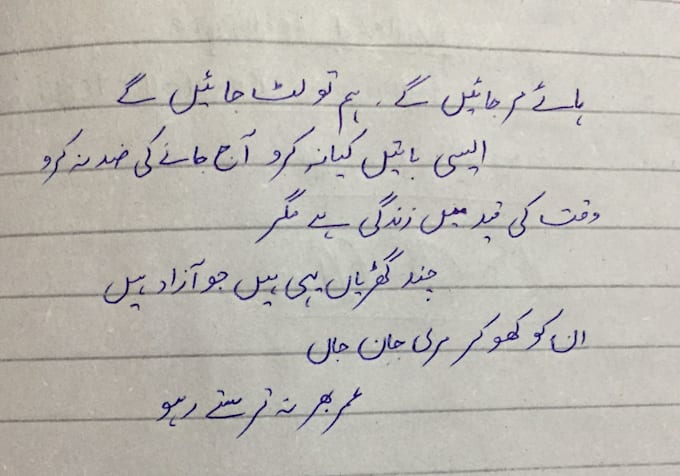 ہائے مر جائیں گے، ہم تو لٹ جائیں گے
ایسی باتیں کیا نہ کرو آج جانے کی ضد نہ کرو
وقت کی قید میں زندگی ہے مگر
چند گھڑیاں یہی ہیں جو آزاد ہیں
ان کو کھو کر مری جان جاں
عمر بھر نہ ترستے رہو